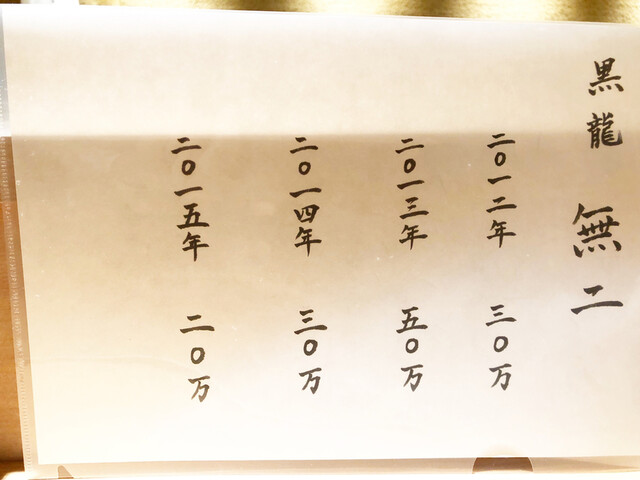 黒龍 無二
二〇一二年 三〇万
二〇一三年 五〇万
二〇一四年 三〇万
二〇一五年 二〇万